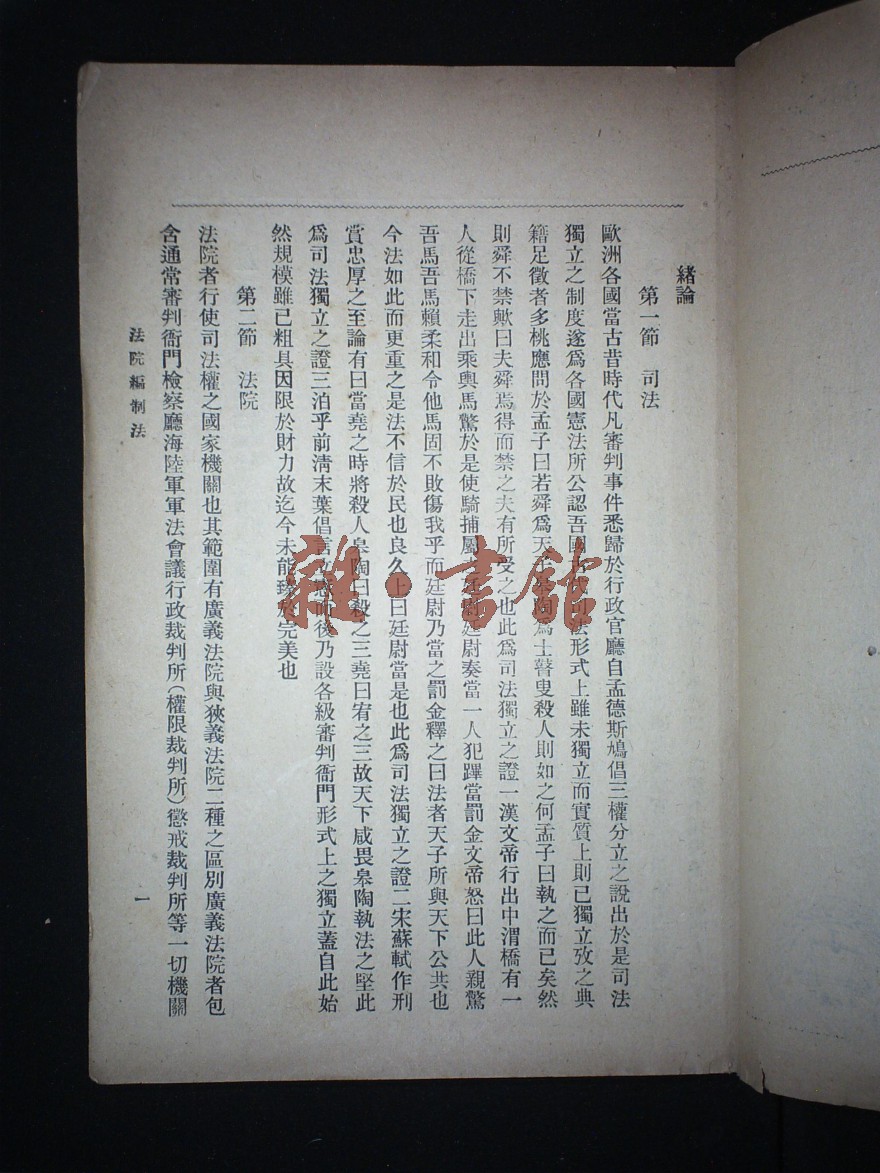 緒論
第一節　司法
歐洲各國當古昔時代凡審判事件悉歸於行政官廳自孟德斯鳩倡三權分立之說出於是司法
獨立之制度遂爲各國憲法所公認吾國古代司法形式上雖未獨立而實質上則已獨立攷之典
籍足徵者多桃應問於孟子曰若舜爲天子皋陶爲士瞽叟殺人則如之何孟子曰執之而已矣然
則舜不禁歟曰夫舜焉得而禁之夫有所受之也此爲司法獨立之證一漢文帝行出中渭橋有一
人從橋下走出乘輿馬驚於是使騎捕屬之廷尉廷尉奏當一人犯蹕當罰金文帝怒曰此人親驚
吾馬吾馬賴柔和令他馬固不敗傷我乎而廷尉乃當之罰金釋之曰法者天子所與天下公共也
今法如此而更重之是法不信於民也良久上曰廷尉當是也此爲司法獨立之證二宋蘇軾作刑
賞忠厚之至論有曰當堯之時將殺人皋陶曰殺之三堯曰宥之三故天下咸畏皋陶執法之堅此
爲司法獨立之證三泊乎前清末葉倡言立憲而後乃設各級審判衙門形式上之獨立蓋自此始
然規模雖已粗具因限於財力故迄今未能臻於完美也
第二節　法院
法院者行使司法權之國家機關也其範圍有廣義法院與狹義法院二種之區別廣義法院者包
含通常審判衙門檢察廳海陸軍軍法會議行政裁判所(權限裁判所)懲戒裁判所等一切機關
法院編制法
一
雜·書館